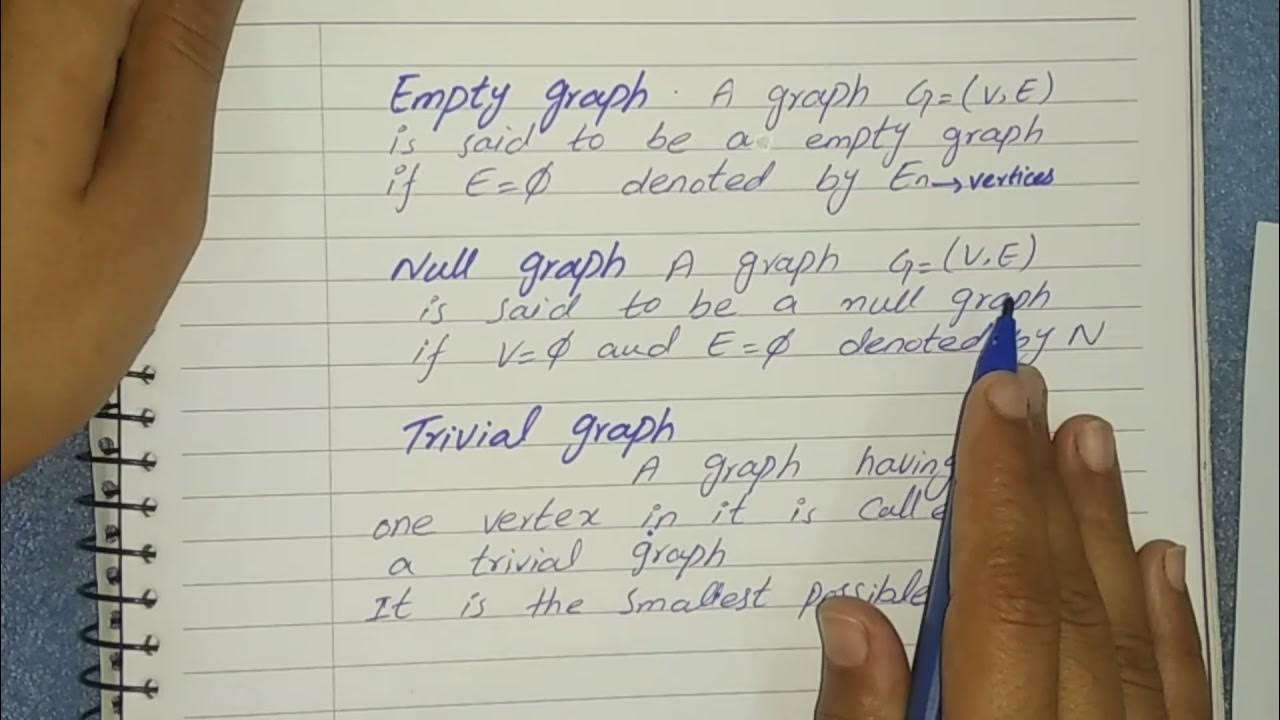 Empty graph. A graph G=(V,E)
is said to be a empty graph
if E=∅ denoted by En→vertices
Null graph A graph G=(V,E)
is said to be a null graph
if V=∅ and E=∅ denoted by N
Trivial graph
A graph having
one vertex in it is
a trivial graph
It is the smallest possible